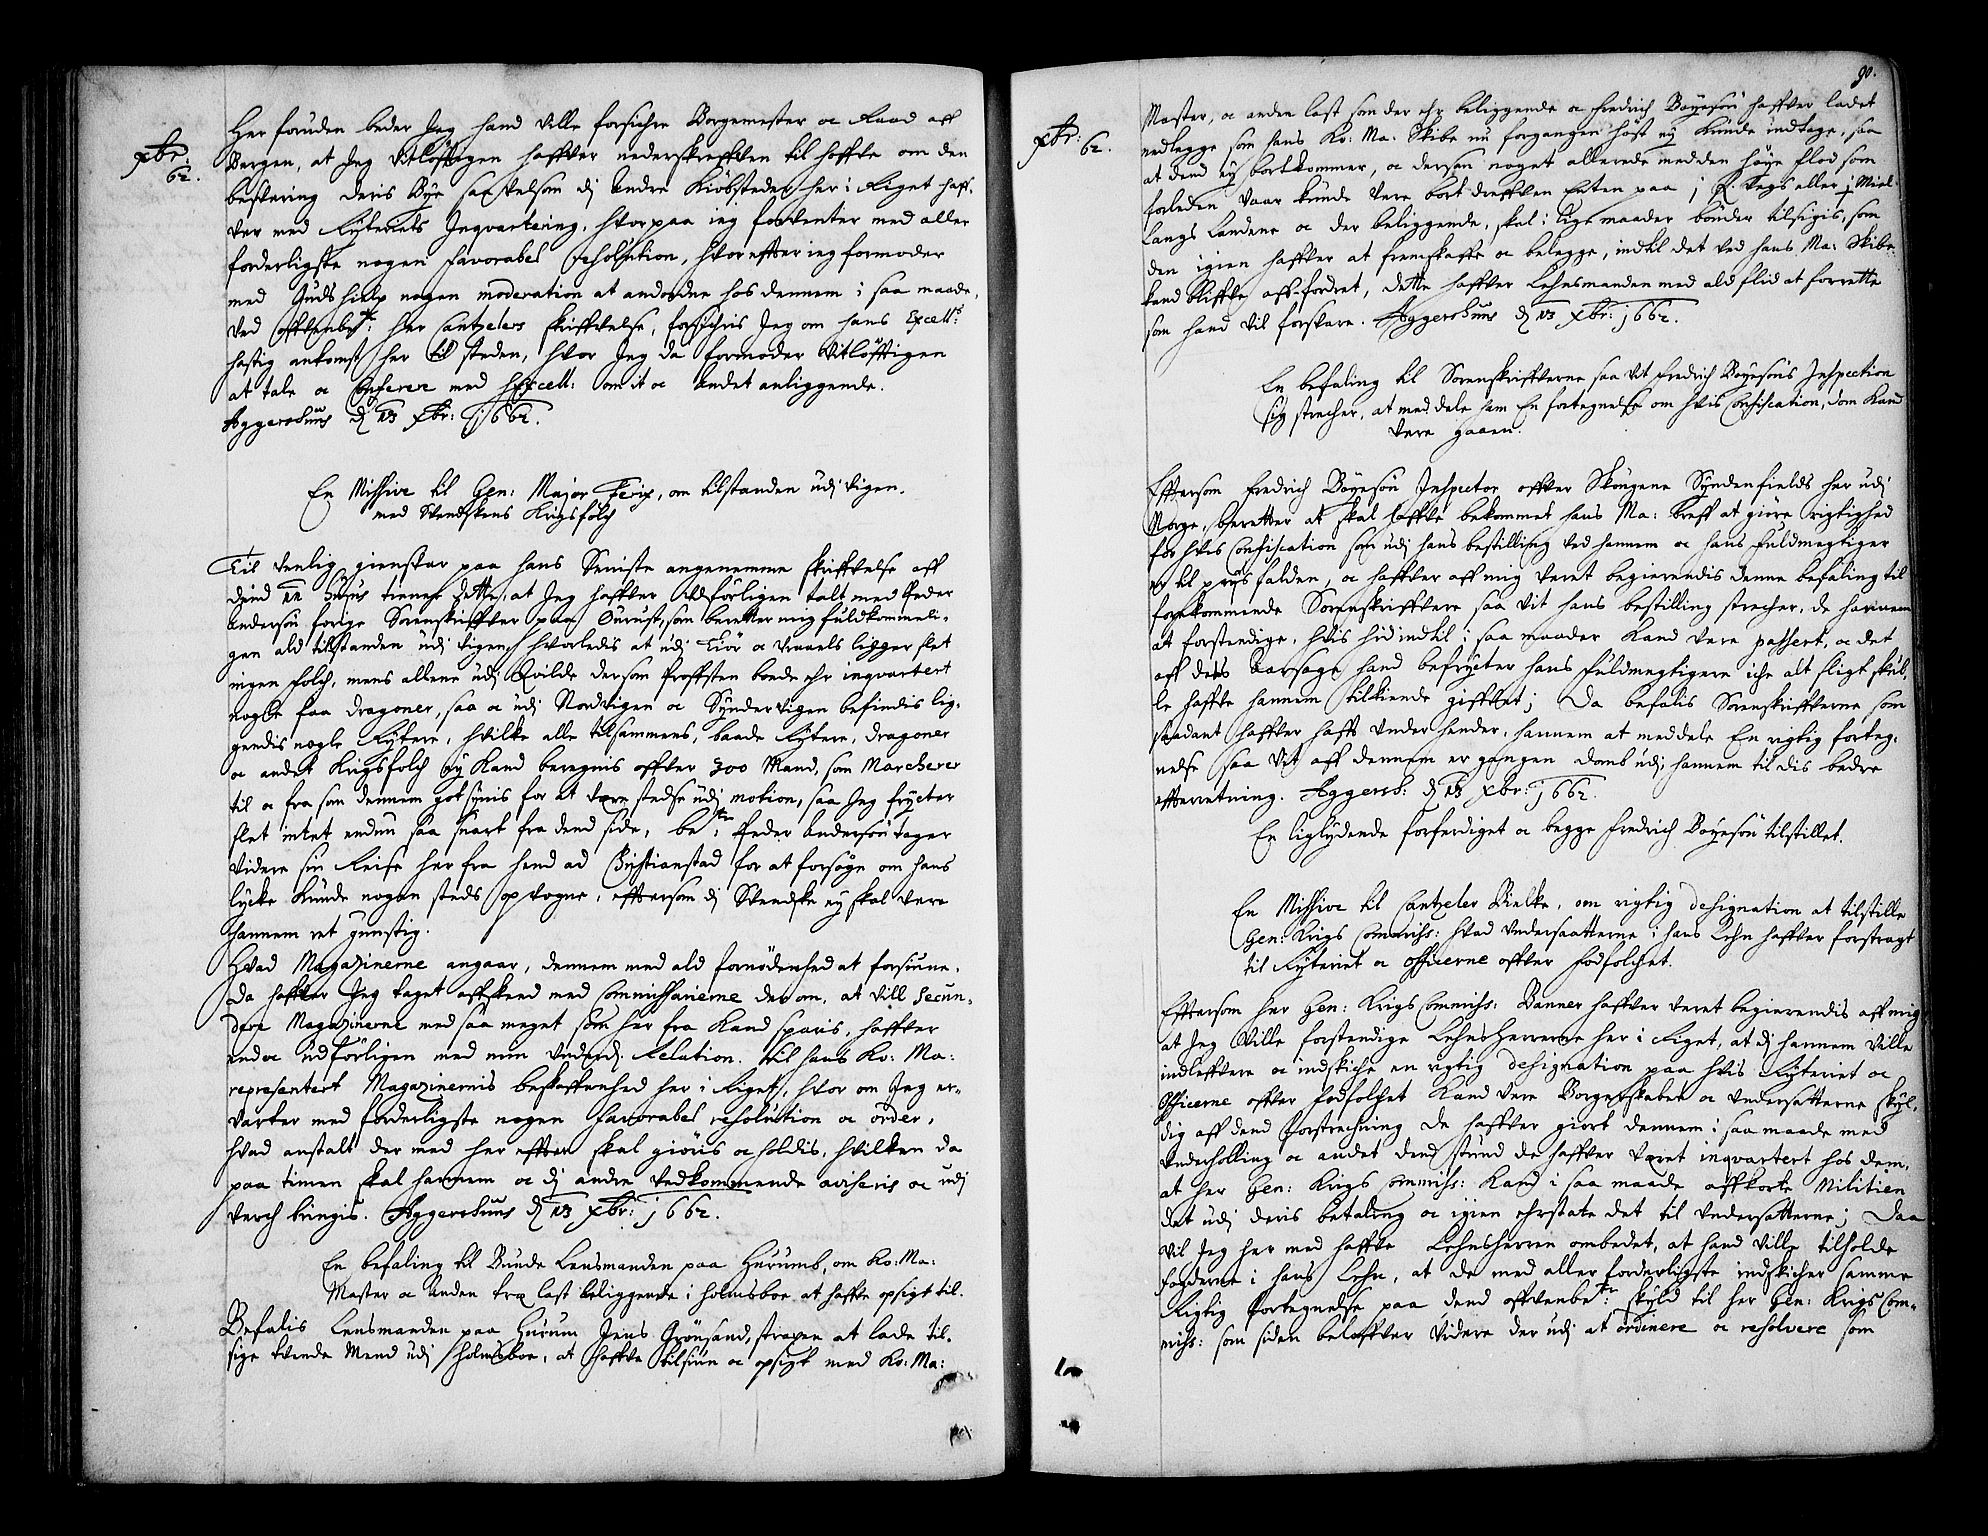 xbr:
62.
Her foruden beder Jeg hand ville forsichre Borgemester oc Raad aff
Bergen, at Jeg vitløfftigen haffver underskreffven til hoffve om den
besvering deris Bye saavelsom di andre Kiøbsteder her i Riget haff-
ver med Rÿteriets Inqvartering, hvorpaa ieg forventer med aller
forderligste nogen favorabel resolution, hvoreffter ieg formoder
med Guds hielp nogen moderation at anordne hos dennem i saa maade,
ved offvenbe: Her Cantzelers skriffvelse, forsichris Jeg om hans Excell:
hastig ankomst her til steden, hvor Jeg da formoder vitløfftigen
at tale oc conferere med Excell: om it oc andet anliggende.
Aggershuus d 13 xbr: 1662.
En Missive til Gen: Major om tilstanden udj vigen.
med Svendskens Krigsfolch
Til venlig giensvar paa hans Seniste angenemme skriffvelse aff
dend hujus tiener dette, at Jeg haffver udførligen talt med Peder
Andersøn forige Sorenskriffver paa Ourust, som beretter mig fuldkommeli-
gen ald tilstanden udj vigen hvorledis at udj Tiør oc ligger slet
ingen folch, mens allene udj Qvilde dersom Proffsten boede ehr inqvartert
nogle faa dragoner, saa oc udj Nordvigen oc Syndervigen befindis lig-
gendis nogle Rÿtere, hvilke alle tilsammens, baade Rÿtere, dragoner
oc andet Krigsfolch eÿ Kand beregnis offver 300 Mand, som Marcherer
til oc fra som dennem got synis for at være stedse udj motion, saa Jeg frycter
slet intet endnu saa snart fra dend side, be: Peder Andersøn tager
videre sin Reise her fra hend ad Christianstad for at forsøge om hans
lycke kunde nogen steds opvogne, efftersom di Svendske eÿ skal vere
hannem ret gunstig.
Hvad Magazinerne angaar, dennem med ald fornødenhed at forsiune,
Da haffver Jeg taget affskeed med Commissarierne der om, at vill secun-
dere Magazinerne med saa meget som her fra Kand sparis, haffver
endoc udførligen med min underd: Relation til hans Ko: Ma:
representert Magazinernis beskaffenhed her i Riget, hvor om Jeg er-
varter med forderligste nogen favorabel resolution oc order,
hvad anstalt der med her effter skal giøris oc holdis, hvilken da
paa timen skal hannem oc di andre vedkommende aviseris oc udj
verch bringis. Aggershuus d 13 xbr: 1662.
En befaling til Bunde Lensmanden paa Hurumb, om Ko: Ma:
Master oc anden træ last beliggende i Holmsboe at haffve opsigt til.
Befalis Lensmanden paa Hurum Jens Grønsand, strapen at lade til-
sige tvende Mend udj Holmsboe, at haffve tilsiun oc opsigt med Ko: Ma:
90.
xbr: 62.
Master, oc anden last som der ehr beliggende oc Fredrich Boyesøn haffver ladet
nedlegge som hans Ko: Ma: Skibe nu forgangen høst eÿ kunde indtage, saa
at dend eÿ bortkommer, oc dersom noget allerede med den høye flod som
forleden vaar kunde vere bort dreffven Enten paa j vegs eller j Miel
langs landene oc der beliggende, skal i lige maader bønder tilsigis, som
den igien haffver at fremskaffe oc belegge, indtil det ved hans Ma: Skibe
kand bliffve aff-fordret, dette haffver Lehnsmanden med ald flid at forrette
som hand vil forsvare. Aggershuus d 13 xbr: 1662.
En befaling til Sorenskriffverne saa vit Fredrich Boyesøns Inspection
sig strecher, at meddele ham En fortegnelse om hvis Confiscation, som Kand
vere gaaen.
Effersom Fredrich Boyesøn Inspector offver Skougene Syndenfields her udj
Norge, beretter at skal haffve bekommet hans Ma: breff at giøre rigtighed
for hvis Confiscation som udj hans bestilling ved hannem oc hans fuldmegtiger
er til priis falden, oc haffver aff mig veret begierendis denne befaling til
forekommende Sorenskriffvere saa vit hans bestilling strecher, de hannem
at forstendige, hvis hid indtil i saa maader Kand vere passert, oc det
aff dends Aarsage hand befrycter hans fuldmegtigere iche alt sligt skul-
le haffve hannem tilkiende giffvet; Da befalis Sorenskriffverne som
saadant haffver hafft under hender, hannem at meddele En rigtig forteg-
nelse saa vit aff dennem er gangen domb udj hannem til dis bedre
effterretning. Aggersh: d 13 xbr: 1662.
En liglydende forferdiget oc begge Fredrich Boyesøn tilstillet.
En Missive til Cantzeler Bielke, om rigtig designation at tilstille
Gen: Krigs Commiss: hvad undersaatterne i hans Lehn haffver forstragt
til Rÿteriet oc officerne offver fodfolchet.
Efftersom her Gen: Krigs Commiss: Banner haffver veret begierendis aff mig
at Jeg ville forstendige Lehnsherrerne her i Riget, at di hannem ville
indleffvere oc indskiche en rigtig designation paa hvis Rÿteriet oc
Officerne offver fodfolchet Kand vere Borgerskabet oc undersatterne skyl-
dig aff dend forstrechning de haffver giort dennem i saa maade med
underholling oc andet dend stund de haffver været inqvartert hos dem,
at her Gen: Krigs Commiss: Kand i saa maade affkorte Militien
det udj deris betaling oc igien ehrstate det til undersatterne; Daa
vil Jeg her med haffve Lehnsherren ombedet, at hand ville tilholde
fogderne i hans Lehn, at de med aller forderligste indskicher samme
Rigtig fortegnelse paa dend offvenbe: skyld til her Gen: Krigs Com-
miss: som siden beloffver videre der udj at ordinere oc resolvere som